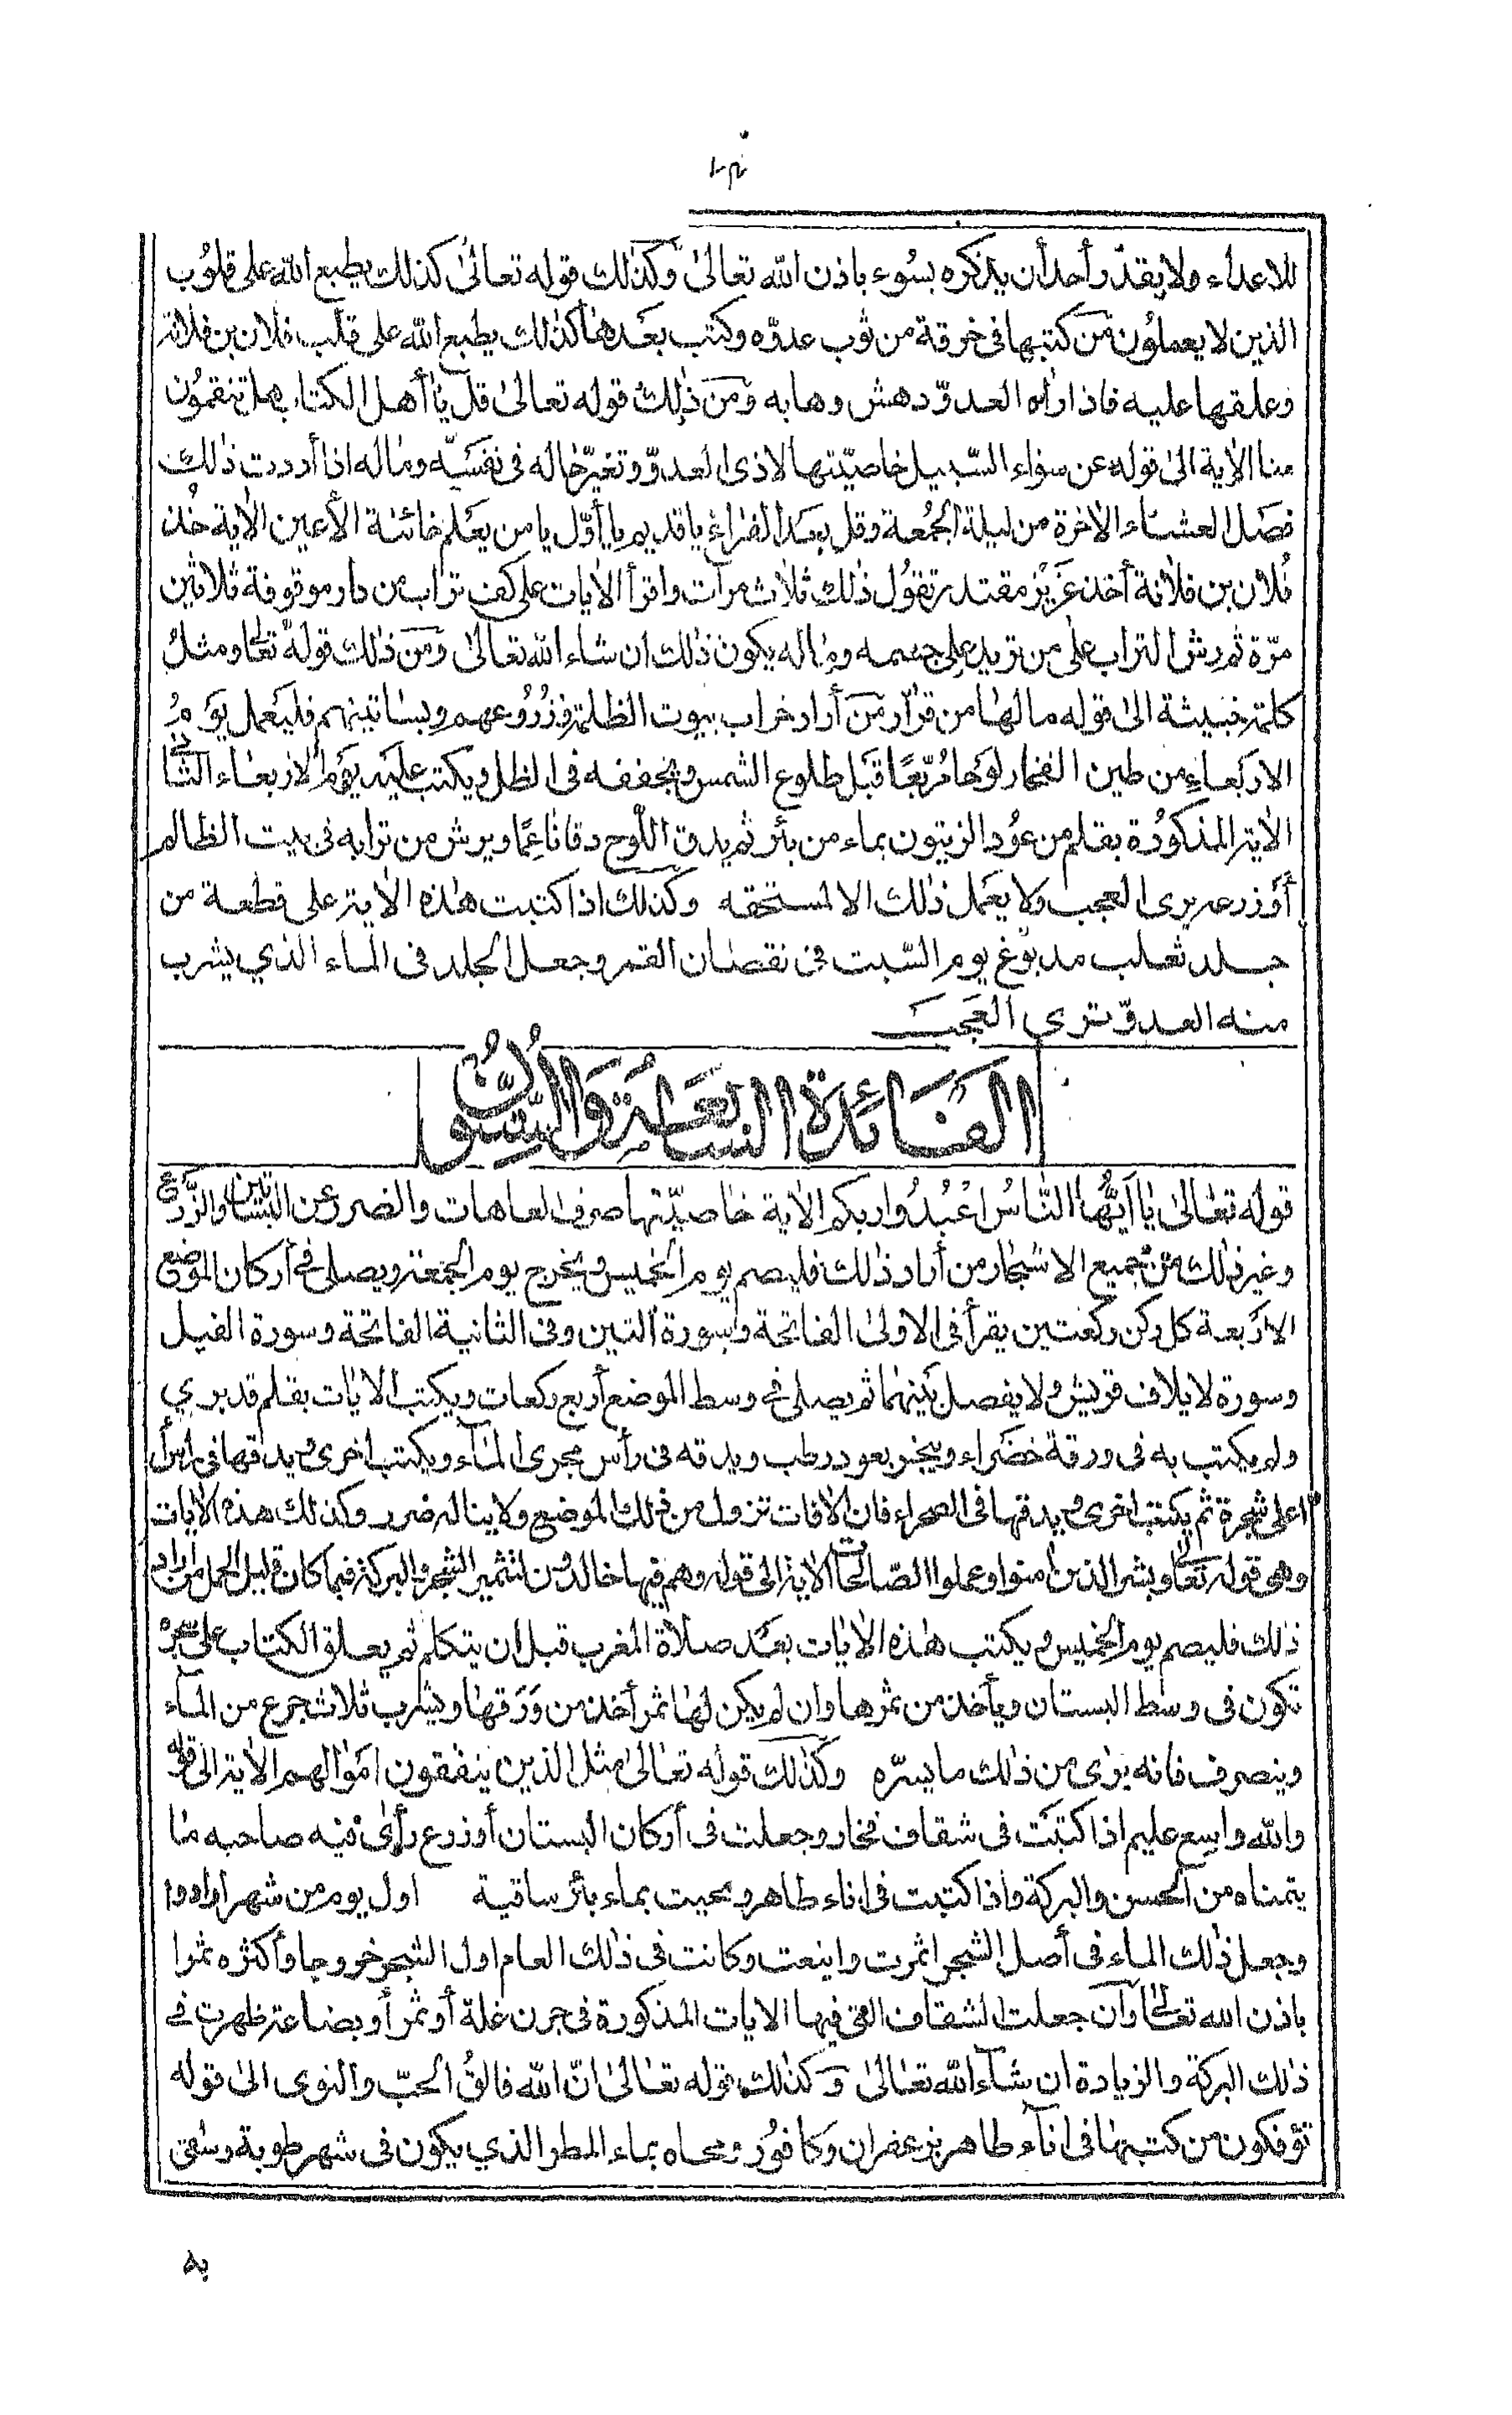 للاعداء ولا يقدر أحد أن يذكره بسوء باذن الله تعالى وكذلك قوله تعالى كذلك يطبع الله على قلوب
الذين لا يعملون من كتبها فى خرقة من ثوب عدوه وكتب بعدها كذلك يطبع الله على قلب فلان بن فلانة
وعلقها عليه فاذا رأه العدو دهش وهابه ومن ذلك قوله تعالى قل يا أهل الكتاب هل تنقمون
منا الاية الى قوله عن سواء السبيل خاصيتها لاذى العدو وتغير حاله فى نفسه وماله اذا أردت ذلك
فصل العشاء الاخرة من ليلة الجمعة وقل بعد الفراغ يا قديم يا أول يا من يعلم خائنة الأعين الاية خذ
فلان بن فلانة أخذ عزيز مقتدر تقول ذلك ثلاث مرات واقرأ الايات على كف تراب من دار موقوفة ثلاثين
مرة ثم رش التراب على من تريد على جسمه وماله يكون ذلك ان شاء الله تعالى ومن ذلك قوله تعالى ومثل
كلمة خبيثة الى قوله مالها من قرار من أراد خراب بيوت الظلمة وزروعهم وبساتينهم فليعمل يوم
الاربعاء من طين الفخار لوحا مربعا قبل طلوع الشمس ويجففه فى الظل ويكتب عليه يوم الاربعاء الثانى
الاية المذكورة بقلم من عود الزيتون بماء من بئر ثم يدق اللوح دقا ناعما ويرش من ترابه فى بيت الظالم
أو زرعه يرى العجب ولا يعمل ذلك الا لمستحقه وكذلك اذا كتبت هذه الاية على قطعة من
جلد ثعلب مدبوغ يوم السبت فى نقصان القمر وجعل الجلد فى الماء الذي يشرب
منه العدو ترى العجب
الفائدة السابعة والستون
قوله تعالى يا أيها الناس اعبدوا ربكم الاية خاصيتها صرف العاهات والضرر عن البساتين والزرع
وغير ذلك من جميع الاشجار من أراد ذلك فليصم يوم الخميس ويخرج يوم الجمعة ويصلى في أركان الموضع
الاربعة كل ركن ركعتين يقرأ فى الاولى الفاتحة وسورة التين وفى الثانية الفاتحة وسورة الفيل
وسورة لايلاف قريش ولا يفصل بينهما ثم يصلى في وسط الموضع أربع ركعات ويكتب الايات بقلم قد بري
ولم يكتب به فى ورقة خضراء ويبخر بعود رطب ويدقه فى رأس مجرى الماء ويكتب اخرى ويدقها فى رأس
اعلى شجرة ثم يكتب اخرى ويدقها فى الصحراء فان الافات تزول من ذلك الموضع ولا يناله ضرر وكذلك هذه الايات
وهى قوله تعالى وبشر الذين امنوا وعملوا الصالحات الاية الى قوله وهم فيها خالدون لتثمير الشجر والبركة فيما كان قليل الحمل من أراد
ذلك فليصم يوم الخميس ويكتب هذه الايات بعد صلاة المغرب قبل ان يتكلم ثم يعلق الكتاب على شجرة
تكون فى وسط البستان ويأخذ من ثمرها وان لم يكن لها ثمر أخذ من ورقها ويشرب ثلاث جرع من الماء
وينصرف فانه يرى من ذلك ما يسره وكذلك قوله تعالى مثل الذين ينفقون اموالهم الاية الى قوله
والله واسع عليم اذا كتبت فى شقاف فخار وجعلت فى أركان البستان أو زرع رأى فيه صاحبه ما
يتمناه من الحسن والبركة واذا كتبت فى اناء طاهر ومحيت بماء بئر ساقية اول يوم من شهر
وجعل ذلك الماء فى أصل الشجر اثمرت واينعت وكانت فى ذلك العام اول الشجر خروجا وأكثره ثمرا
باذن الله تعالى وان جعلت الشقاف التى فيها الايات المذكورة فى جرن غلة أو ثمر أو بضاعة ظهرت في
ذلك البركة والزيادة ان شاء الله تعالى وكذلك قوله تعالى ان الله فالق الحب والنوى الى قوله
تؤفكون من كتبها فى اناء طاهر بزعفران وكافور ومحاه بماء المطر الذي يكون فى شهر طوبة وسقى
به